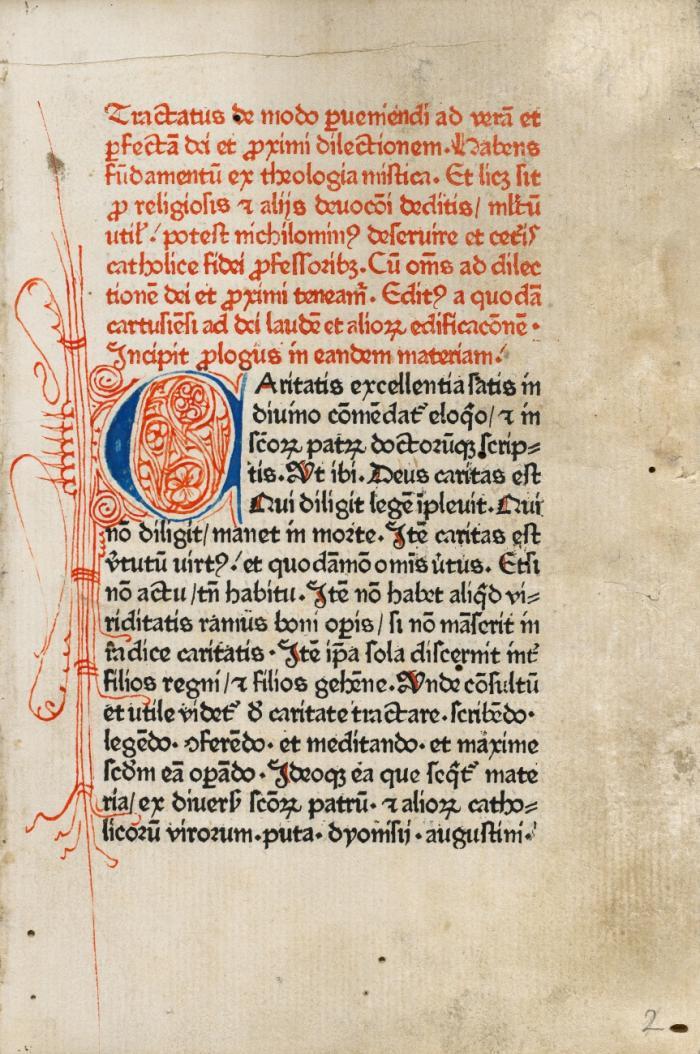 Tractatus de modo ꝑueniendi ad verā et
ꝑfectā dei et ꝓximi dilectionem. Habens
fūdamentū ex theologia mistica. Et licꝫ sit
ꝓ religiosis ⁊ alijs deuocōi deditis/ ml̄tū
util'/ potest nichilominꝰ deseruire et cet̄s
catholice fidei ꝓfessoribꝫ. Cū om̄s ad dilec
tionē dei et ꝓximi teneam̄. Editꝰ a quodā
cartusiēsi ad dei laudē et alioꝝ edificacōnē.
Incipit ꝓlogus in eandem materiam.
CAritatis excellentia satis in
diuino cōmēdat᷑ eloq̄o/ ⁊ in
scōꝝ patꝝ doctorūqꝫ scrip=
tis. Vt ibi. Deus caritas est
Qui diligit legē īpleuit. Qui
nō diligit/ manet in morte. Itē caritas est
v̄tutū uirtꝰ/ et quodāmō om̄is ūtus. Etsi
nō actu/ tn̄ habitu. Itē nō habet aliq̄d vi=
riditatis ramus boni oꝑis/ si nō māserit in
radice caritatis. Itē ip̄a sola discernit int᷑
filios regni/ ⁊ filios gehēne. Vnde cōsultū
et utile videt᷑ ð caritate tractare. scribēdo.
legēdo. ꝯferēdo. et meditando. et maxime
scd̄m eā oꝑādo. Ideoqꝫ ea que seq̄t᷑ mate
ria/ ex diuers̄ scōꝝ patrū. ⁊ alioꝝ catho=
licorū virorum. puta. dyonisij. augustini.
2